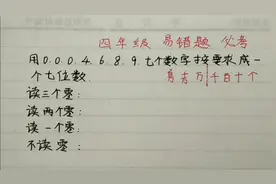 四年级 易错题 必考
用0.0.0.4.6.8.9.七个数字按要求,成一
个七位数.
百十万千百十个
读三个零:
读两个零:
读一个零:
不读零: